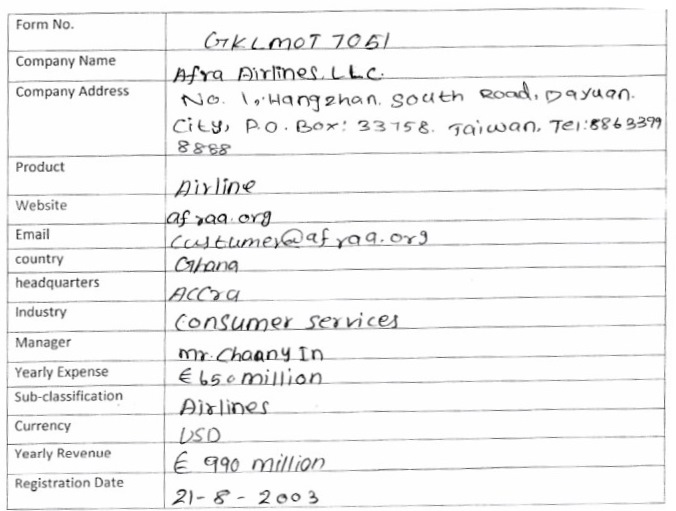 Form No.
GKLMOT 7051
Company Name
Afra Airlines, LLC.
Company Address
No. 1, Hangzhan. South Road, Dayuan.
City, P.O. Box: 33758. Taiwan, Tel:8863399
8888
Product
Airline
Website
afraa.org
Email
Custumer@afraa.org
country
Ghana
headquarters
Accra
Industry
Consumer services
Manager
mr. Chaany In
Yearly Expense
€ 650 million
Sub-classification
Airlines
Currency
USD
Yearly Revenue
€ 990 million
Registration Date
21-8-2003